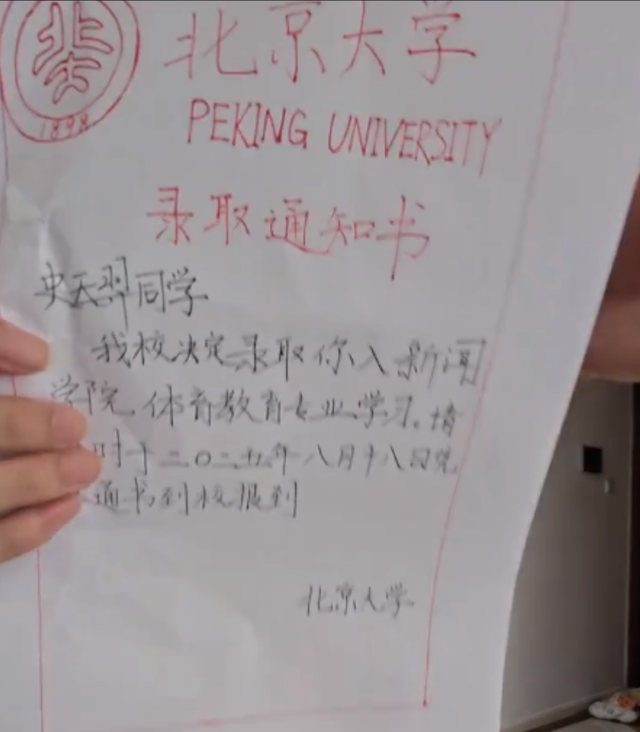 1898
北京大学
PEKING UNIVERSITY
录取通知书
史天羿同学
我校决定录取你入新闻
学院体育教育专业学习。请
时于二〇二五年八月十八日凭
通书到校报到
北京大学